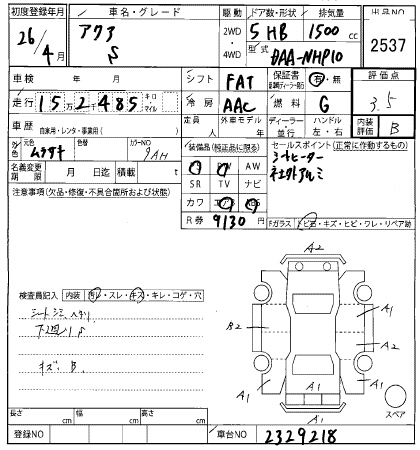 初度登録年月 車名・グレード 駆動 ドア数・形状 排気量 出品NO
26年 アクア 2WD 5 HB 1500cc
4月 S ・4WD 型式 DAA-NHP10 2537
車検 年 月 シフト FAT 保証書 有・無 評価点
走行 152485 キロ・マイル 冷房 AAC 燃料 G 3.5
車歴 自家用・レンタ・事業用( ) 定員 人 外車モデル 年 ディーラー 並行 ハンドル 左・右 内装評価 B
外色 元色 ムラサキ 色替 カラーNO 9AH
装備品(純正品に限る) セールスポイント(正常に作動するもの)
名義変更期限 月 日迄 積載 t
AW シートヒーター
SR TV ナビ
注意事項(欠品・修復・不具合箇所および状態)
カワ エアB ABS
R券 9130円
Fガラス トビ石・キズ・ヒビ・ワレ・リペア跡
A2
検査員記入 内装 汚レ・スレ・キズ・キレ・コゲ・穴
A1
B2
A2
キズ B
A1 A1 A1
A1
スペア
長さ cm 幅 cm 高さ cm
登録NO 車台NO 2329218